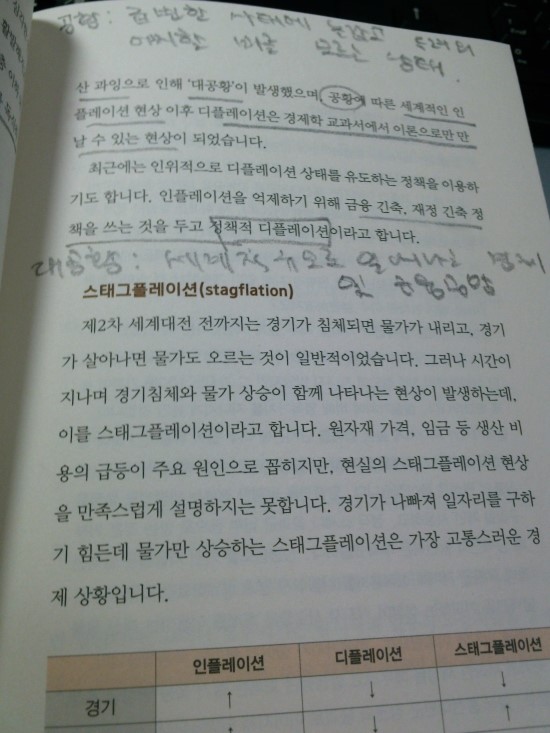 공황: 급변한 사태에 놀라고 두려워
어찌할 바를 모르는 상태.
산 과잉으로 인해 '대공황'이 발생했으며, 공황에 따른 세계적인 인
플레이션 현상 이후 디플레이션은 경제학 교과서에서 이론으로만 만
날 수 있는 현상이 되었습니다.
최근에는 인위적으로 디플레이션 상태를 유도하는 정책을 이용하
기도 합니다. 인플레이션을 억제하기 위해 금융 긴축, 재정 긴축 정
책을 쓰는 것을 두고 정책적 디플레이션이라고 합니다.
대공황: 세계적 규모로 일어나는 경제
및
스태그플레이션(stagflation)
제2차 세계대전 전까지는 경기가 침체되면 물가가 내리고, 경기
가 살아나면 물가도 오르는 것이 일반적이었습니다. 그러나 시간이
지나며 경기침체와 물가 상승이 함께 나타나는 현상이 발생하는데,
이를 스태그플레이션이라고 합니다. 원자재 가격, 임금 등 생산 비
용의 급등이 주요 원인으로 꼽히지만, 현실의 스태그플레이션 현상
을 만족스럽게 설명하지는 못합니다. 경기가 나빠져 일자리를 구하
기 힘든데 물가만 상승하는 스태그플레이션은 가장 고통스러운 경
제 상황입니다.
인플레이션 디플레이션 스태그플레이션
경기 ↑ ↓ ↓
↑ ↓ ↑